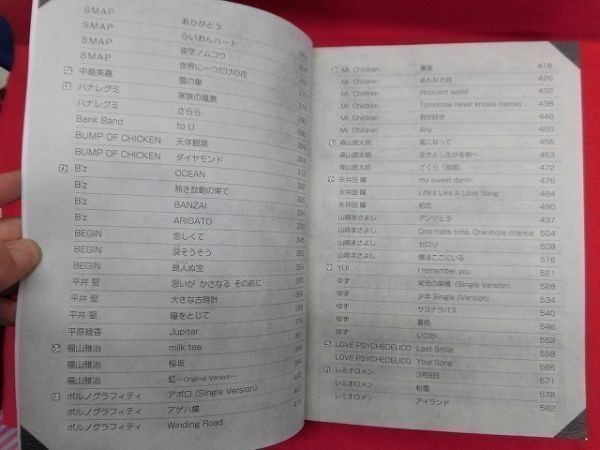 SMAP ありがとう
SMAP らいおんハート
SMAP 夜空ノムコウ
SMAP 世界に一つだけの花
中島美嘉 雪の華
ハナレグミ 家族の風景
ハナレグミ さらら
Bank Band to U
BUMP OF CHICKEN 天体観測
BUMP OF CHICKEN ダイヤモンド
B'z OCEAN
B'z 熱き鼓動の果て
B'z BANZAI
B'z ARIGATO
BEGIN 恋しくて
BEGIN 涙そうそう
BEGIN 島人ぬ宝
平井 堅 思いが かさなる その前に…
平井 堅 大きな古時計
平井 堅 瞳をとじて
平原綾香 Jupiter
福山雅治 milk tea
福山雅治 桜坂
福山雅治 虹~Original Version~
ポルノグラフィティ アポロ (Single Version)
ポルノグラフィティ アゲハ蝶 414
ポルノグラフィティ Winding Road
Mr. Children 418
Mr. Children 名もなき詩 426
Mr. Children innocent world 432
Mr. Children Tomorrow never knows (remix) 438
Mr. Children 君が好き 446
Mr. Children Any 450
森山直太朗 風になって 456
森山直太朗 生きとし生ける物へ 462
森山直太朗 さくら (独唱) 476
矢井田 瞳 my sweet darlin' 476
矢井田 瞳 Life's Like A Love Song 484
矢井田 瞳 初恋 490
山崎まさよし アンジェラ 497
山崎まさよし One more time, One more chance 504
山崎まさよし セロリ 508
山崎まさよし 僕はここにいる 516
YUI I remember you 521
ゆず 栄光の架橋 (Single Version) 527
ゆず 少年 Single (Version) 534
ゆず サヨナラバス 540
ゆず 夏色 546
ゆず いつか 552
LOVE PSYCHEDELICO Last Smile 558
LOVE PSYCHEDELICO Your Song 566
レミオロメン 3月9日 571
レミオロメン 粉雪 578
レミオロメン アイランド 582